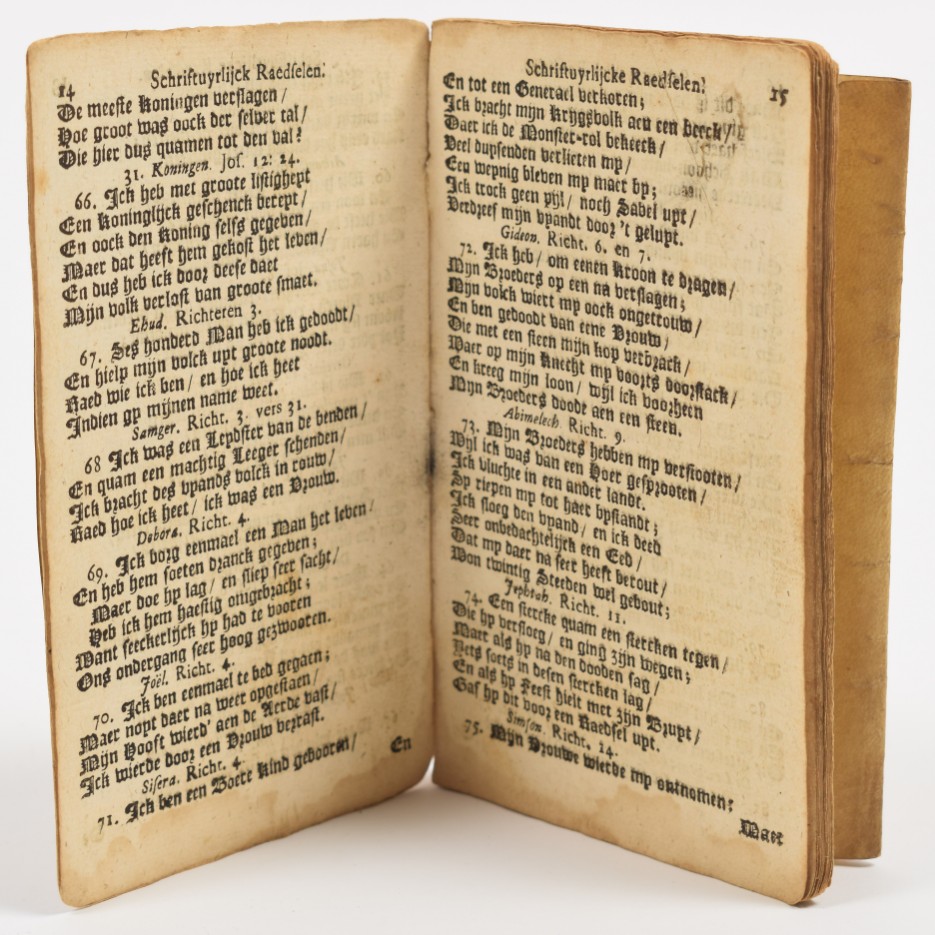 14
Schriftuyrlijck Raedselen.
De meeste Koningen verslagen /
Hoe groot was oock der selver tal /
Die hier dus quamen tot den val?
31. Koningen. Jos. 12: 24.
66. Ick heb met groote listigheyt
Een Koninglijck geschenck bereyt /
En oock den Koning selfs gegeven /
Maer dat heeft hem gekost het leven /
En dus heb ick door deese daet
Mijn volk verlost van groote smaet.
Ehud. Richteren 3.
67. Ses honderd Man heb ick gedoodt /
En hielp mijn volck uyt groote noodt.
Raed wie ick ben / en hoe ick heet
Indien gy mijnen name weet.
Samger. Richt. 3. vers 31.
68 Ick was een Leydster van de benden /
En quam een machtig Leeger schenden /
Ick bracht des vyands volck in rouw /
Raed hoe ick heet / ick was een Vrouw.
Debora. Richt. 4.
69. Ick borg eenmael een Man het leven /
En heb hem soeten dranck gegeven;
Maer doe hy lag / en sliep seer sacht /
Heb ick hem haestig omgebracht;
Want seeckerlijck hy had te vooren
Ons ondergang seer hoog gezwooren.
Joël. Richt. 4.
70. Ick ben eenmael te bed gegaen;
Maer noyt daer na weer opgestaen /
Mijn Hooft wierd' aen de Aerde vast /
Ick wierde door een Vrouw verrast.
Sisera. Richt. 4.
71. Ick ben een Boere kind gebooren /
En
Schriftuyrlijcke Raedselen.
15
En tot een Generael verkoren;
Ick bracht mijn Krygsvolk aen een beeck /
Daer ick de Monster-rol bekeeck /
Veel duysenden verlieten my /
Een weynig bleven my maer by;
Ick trock geen pijl / noch Sabel uyt /
Verdreef mijn vyandt door 't geluyt.
Gideon. Richt. 6. en 7.
72. Ick heb / om eenen Kroon te dragen /
Mijn Broeders op een na verslagen;
Mijn volck wiert my oock ongetrouw /
En ben gedoodt van eene Vrouw /
Die met een steen mijn kop verbrack /
Waer op mijn Knecht my voorts doorstack /
En kreeg mijn loon / wijl ick voorheen
Mijn Broeders doode aen een steen.
Abimelech. Richt. 9.
73. Mijn Broeders hebben my verstooten /
Wijl ick was van een Hoer gesprooten /
Ick vluchte in een ander landt.
Sy riepen my tot haer bystandt;
Ick sloeg den vyand / en ick deed
Seer onbedachtelijck een Eed /
Dat my daer na seer heeft berout /
Won twintig Steeden wel gebout;
Jephtah. Richt. 11.
74. Een stercke quam een stercken tegen /
Die hy versloeg / en ging zijn wegen;
Maer als hy na den dooden sag /
Yets soets in desen stercken lag /
En als hy Feest hielt met zijn Bruyt /
Gaf hy dit voor een Raedsel uyt.
Simson. Richt. 14.
75. Mijn Vrouwe wierde my ontnomen;
Maer